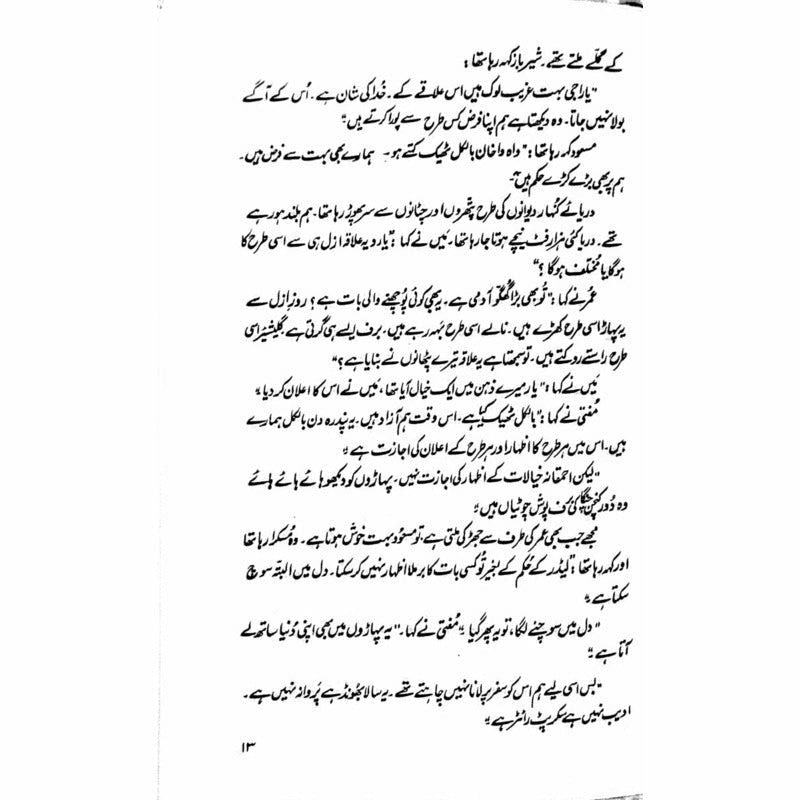 کے گملے ہلتے تھے۔ شیر باز کہہ رہا تھا:
"یارا جی بہت غریب لوگ ہیں اس علاقے کے۔ خُدا کی شان ہے۔ اُس کے آگے
بولا نہیں جاتا۔ وہ دیکھتا ہے ہم اپنا فرض کس طرح سے پورا کرتے ہیں۔"
مسعود کہہ رہا تھا: "واہ وا خان بالکل ٹھیک کہتے ہو۔ ہمارے بھی بہت سے فرض ہیں۔
ہم پر بھی بڑے کڑے حکم ہیں۔"
دریائے کنہار دیوانوں کی طرح پتھروں اور چٹانوں سے سر پھوڑ رہا تھا۔ ہم بلند ہو رہے
تھے۔ دریا کئی ہزار فٹ نیچے ہوتا جا رہا تھا۔ میں نے کہا: "یارو یہ علاقہ ازل ہی سے اسی طرح کا
ہوگا یا مختلف ہوگا؟"
عمر نے کہا: "تُو بھی بڑا گھگو آدمی ہے۔ یہ بھی کوئی پُوچھنے والی بات ہے؟ روزِ ازل سے
یہ پہاڑ اسی طرح کھڑے ہیں۔ نالے اسی طرح بہہ رہے ہیں۔ برف ایسے ہی گرتی ہے گلیشیئر اسی
طرح راستے روکتے ہیں۔ تو سمجھتا ہے یہ علاقہ تیرے پٹھانوں نے بنایا ہے؟"
میں نے کہا: "یار میرے ذہن میں ایک خیال آیا تھا، میں نے اس کا اعلان کر دیا۔"
مُفتی نے کہا: "بالکل ٹھیک کیا ہے۔ اس وقت ہم آزاد ہیں۔ یہ پندرہ دن بالکل ہمارے
ہیں۔ اس میں ہر طرح کا اظہار اور ہر طرح کے اعلان کی اجازت ہے۔"
"لیکن احمقانہ خیالات کے اظہار کی اجازت نہیں۔ پہاڑوں کو دیکھو ہائے ہائے ہائے
وہ دُور کنچن چنگا کی برف پوش چوٹیاں ہیں۔"
مجھے جب بھی عمر کی طرف سے جھڑکی ملتی ہے، تو مسعود بہت خوش ہوتا ہے۔ وہ مُسکرا رہا تھا
اور کہہ رہا تھا: "لیڈر کے حُکم کے بغیر تُو کسی بات کا برملا اظہار نہیں کر سکتا۔ دل میں البتّہ سوچ
سکتا ہے۔"
"دل میں سوچنے لگا، تو یہ پھر گیا۔" مُفتی نے کہا۔ "یہ پہاڑوں میں بھی اپنی دُنیا ساتھ لے
آتا ہے۔"
"بس اسی لیے ہم اس کو سفر پر لانا نہیں چاہتے تھے۔ یہ سالا بھُونڈ ہے پُروانہ نہیں ہے۔
ادیب نہیں ہے سکرپٹ رائٹر ہے۔"
۱۳